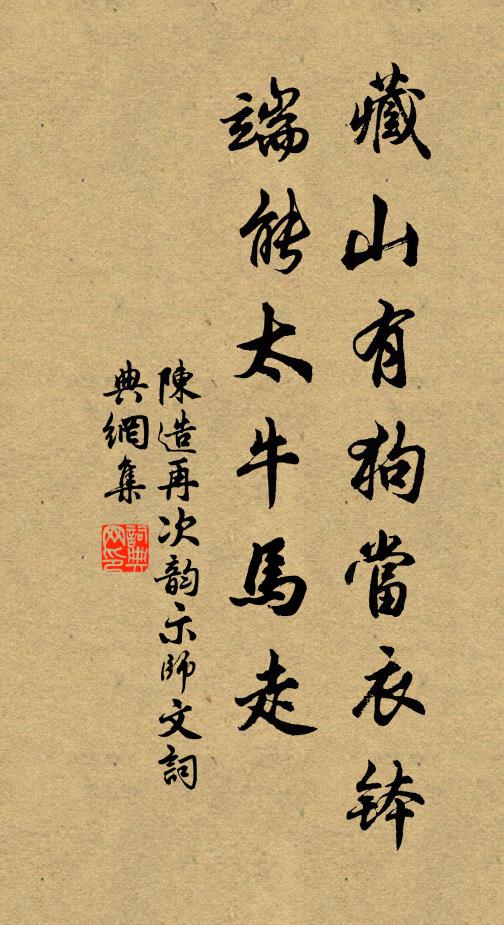 藏山有狗當衣鉢
端能太牛馬走
陳造再次韵示師文詞
典網集
詞典網印